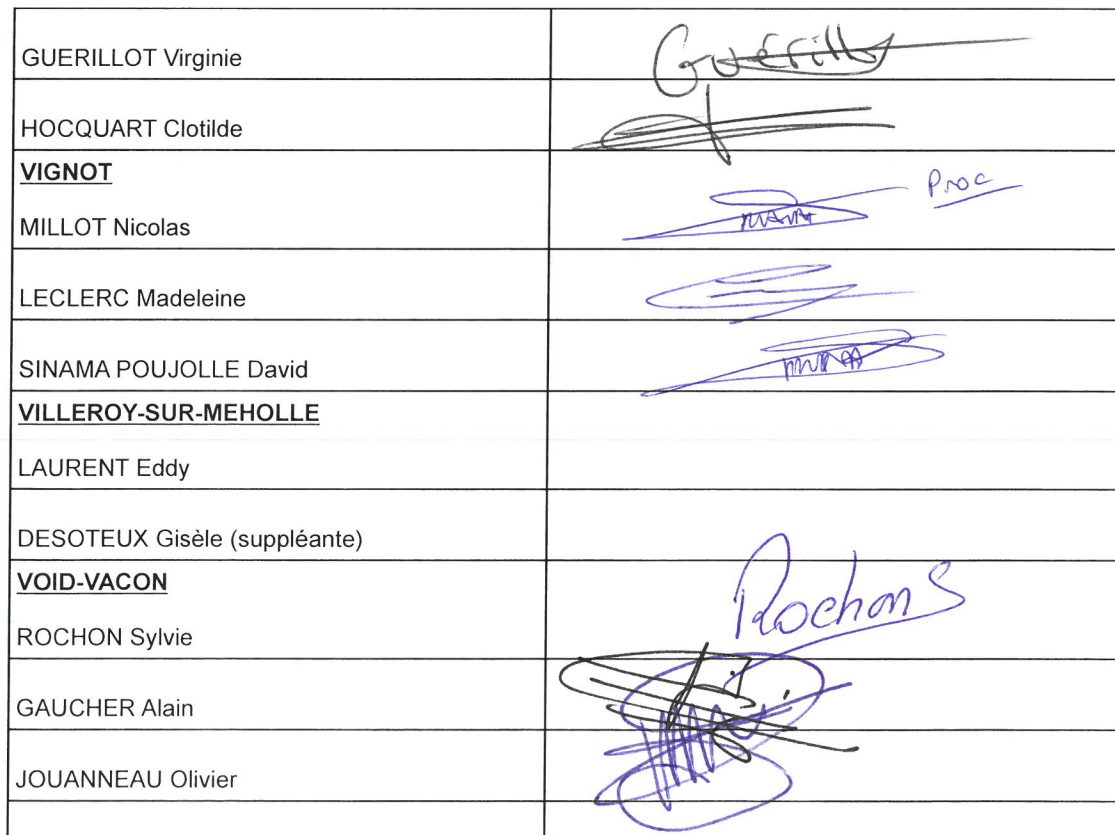 GUERILLOT Virginie
Guérillot
HOCQUART Clotilde
VIGNOT
Proc
MILLOT Nicolas
LECLERC Madeleine
SINAMA POUJOLLE David
VILLEROY-SUR-MEHOLLE
LAURENT Eddy
DESOTEUX Gisèle (suppléante)
VOID-VACON
Rochon S
ROCHON Sylvie
GAUCHER Alain
JOUANNEAU Olivier